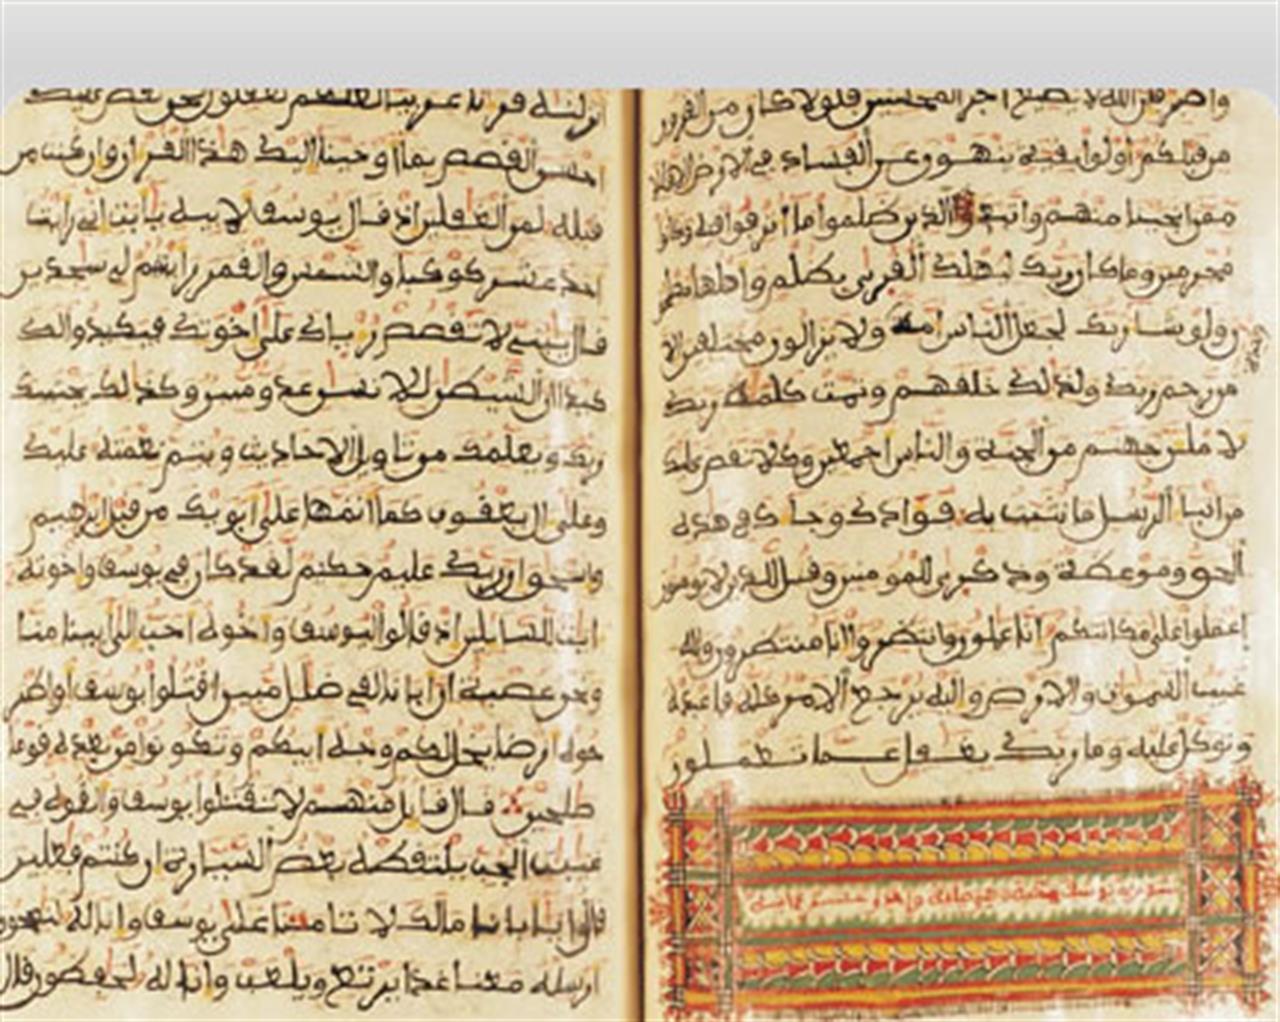 واصبر فان الله لا يضيع اجر المحسنين فلولا كان من القرون
من قبلكم اولوا بقية ينهون عن الفساد في الارض الا قليلا
ممن انجينا منهم واتبع الذين ظلموا ما اترفوا فيه وكانوا
مجرمين وما كان ربك ليهلك القرى بظلم واهلها مصلحون
ولو شا ربك لجعل الناس امة ولا يزالون مختلفين الا
من رحم ربك ولذلك خلقهم وتمت كلمة ربك
لاملن جهنم من الجنة والناس اجمعين وكلا نقص عليك
من انبا الرسل ما نثبت به فوادك وجاك في هذه
الحق وموعظة وذكرى للمومنين وقل للذين لا يومنون
اعملوا على مكانتكم انا عملون وانتظروا انا منتظرون ولله
غيب السموت والارض واليه يرجع الامر كله فاعبده
وتوكل عليه وما ربك بغفل عما تعملون
انزلنه قرنا عربيا لعلكم تعقلون نحن نقص عليك
احسن القصص بما اوحينا اليك هذا القران وان كنت من
قبله لمن الغفلين اذ قال يوسف لابيه يابت اني رايت
احد عشر كوكبا والشمس والقمر رايتهم لي سجدين
قال يبني لا تقصص رياك على اخوتك فيكيدوا لك
كيدا ان الشيطن للانسن عدو مبين وكذلك يجتبيك
ربك ويعلمك من تاويل الاحاديث ويتم نعمته عليك
وعلى ال يعقوب كما اتمها على ابويك من قبل ابرهيم
واسحق ان ربك عليم حكيم لقد كان في يوسف واخوته
ايت للسايلين اذ قالوا ليوسف واخوه احب الى ابينا منا
ونحن عصبة ان ابانا لفي ضلل مبين اقتلوا يوسف او اطر
حوه ارضا يخل لكم وجه ابيكم وتكونوا من بعده قوما
صلحين قال قايل منهم لا تقتلوا يوسف والقوه في
غيبت الجب يلتقطه بعض السيارة ان كنتم فعلين
قالوا يابانا مالك لا تامنا على يوسف وانا له لنصحون
ارسله معنا غدا يرتع ويلعب وانا له لحفظون قال